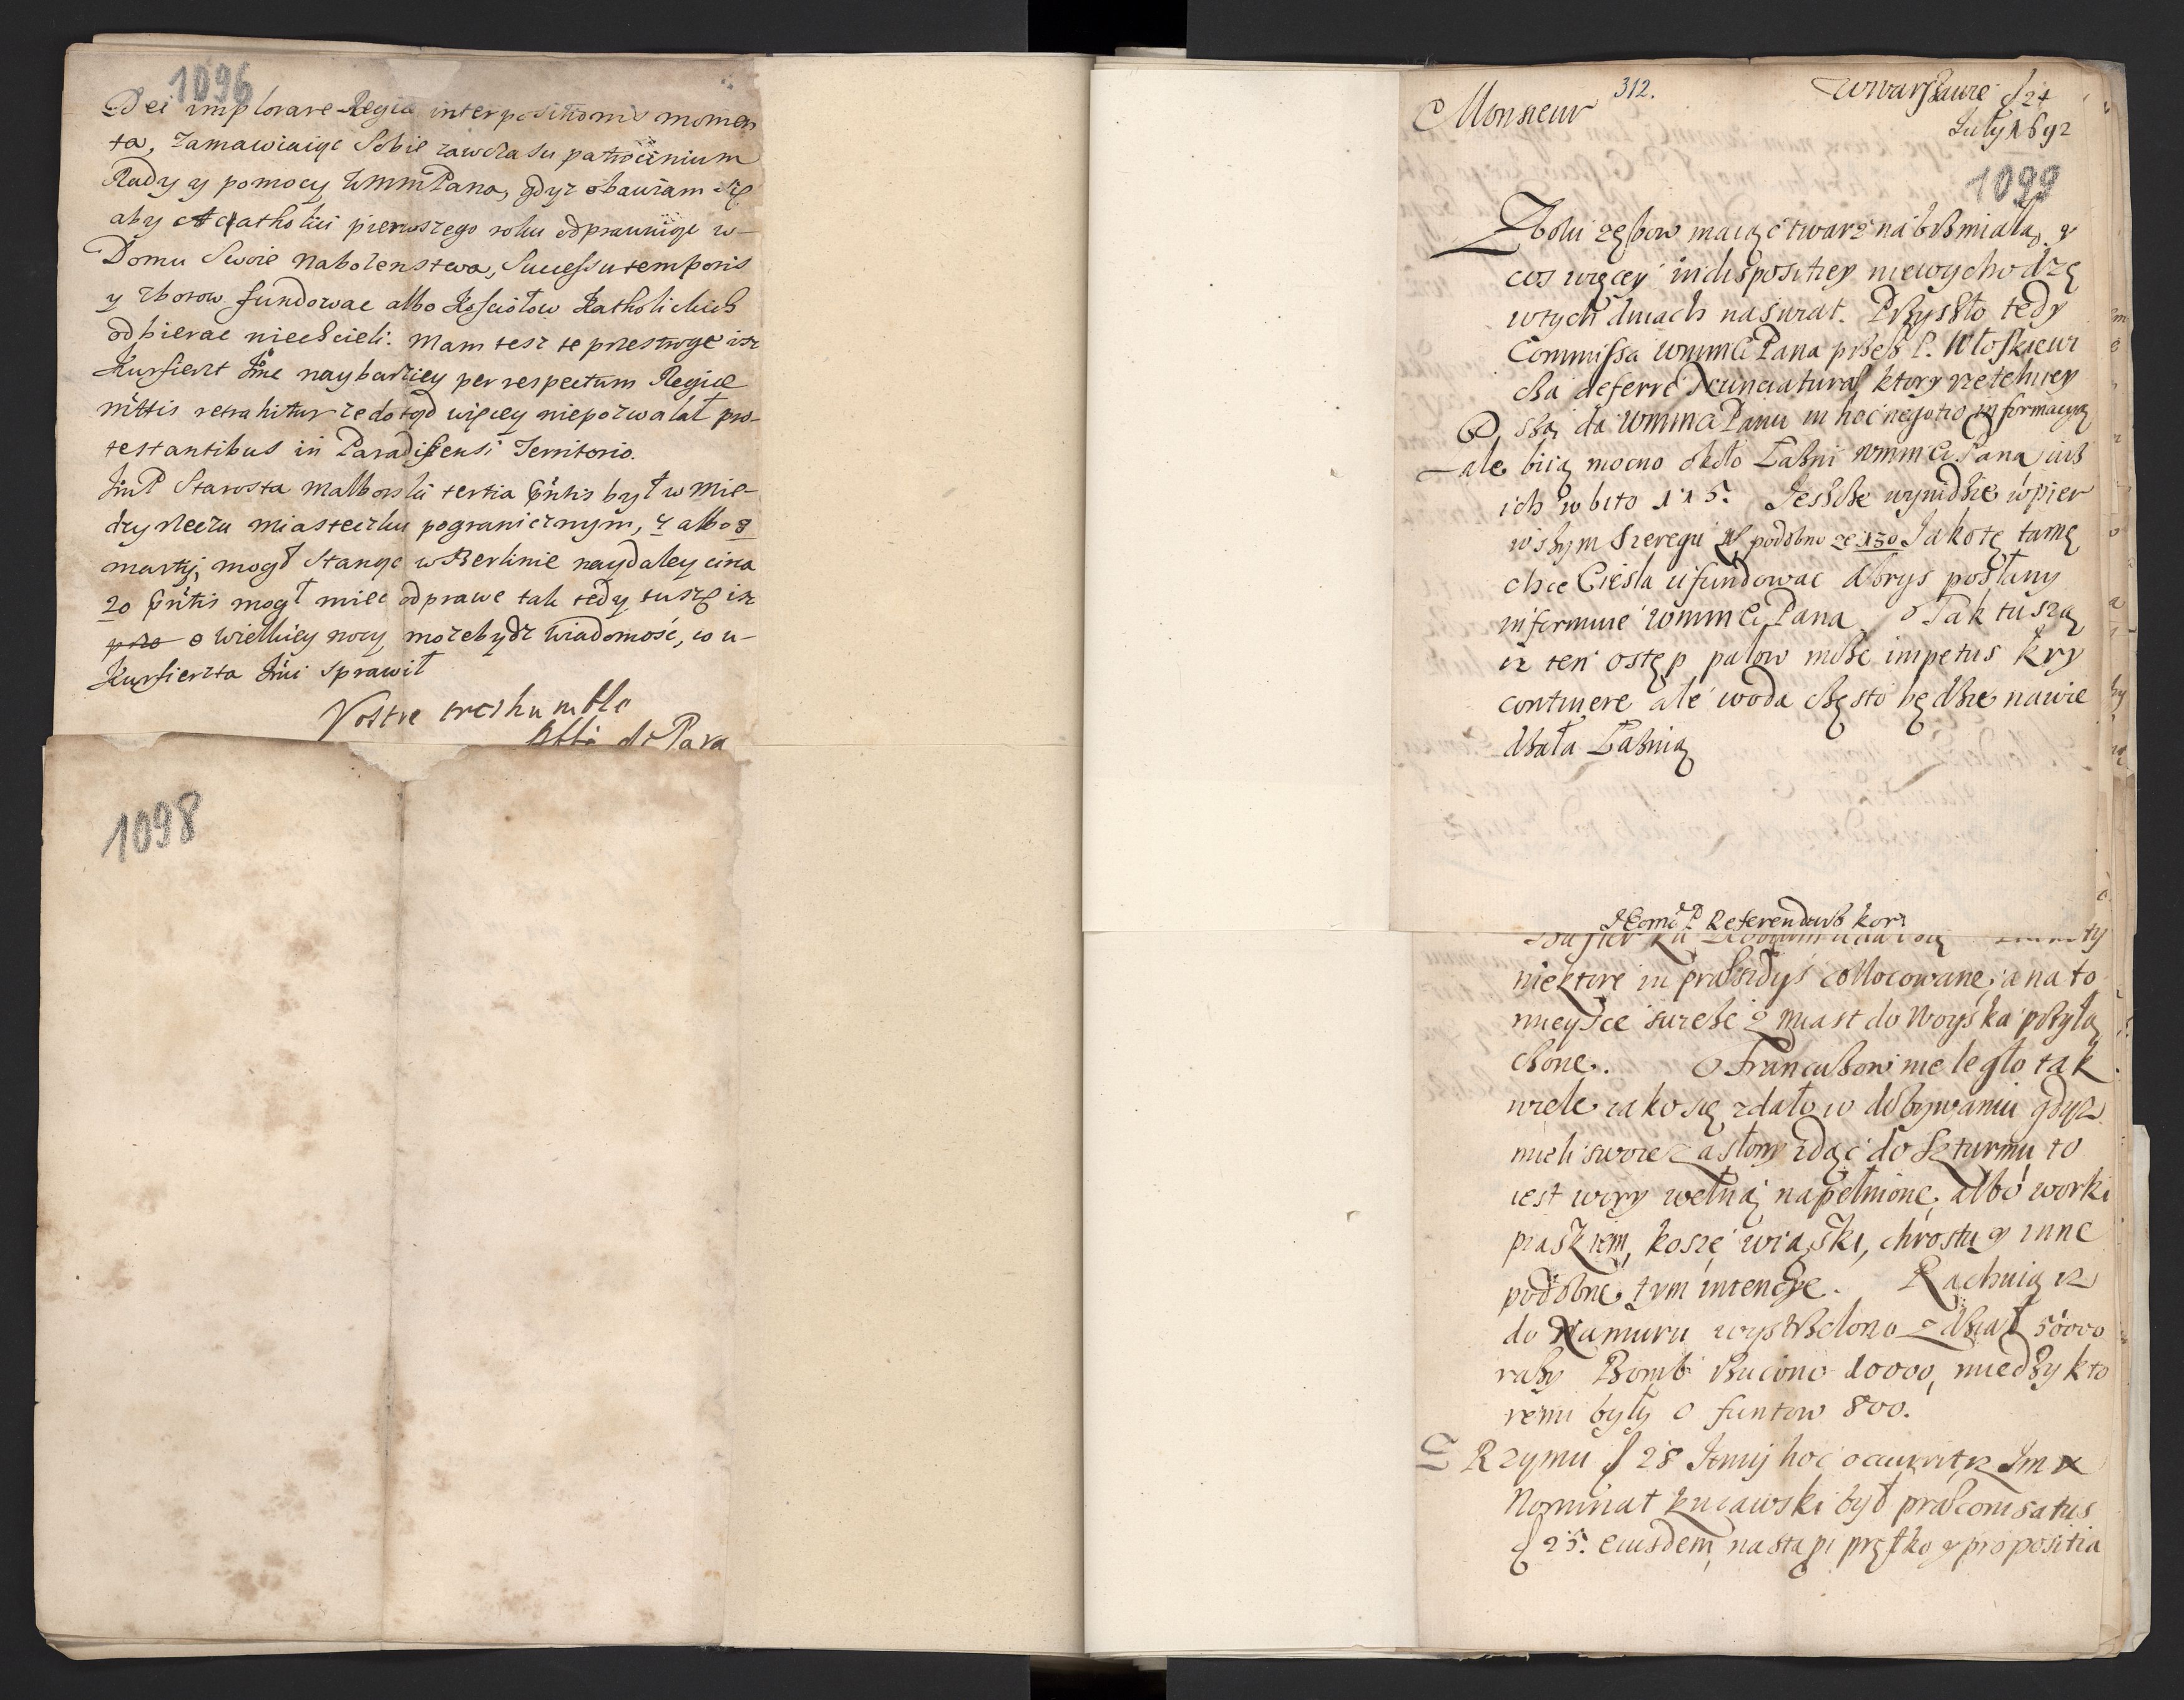 1096
Dei implorare Regia interpositionis momen
ta, zamawiaiąc Sobie zawczasu patrocinium
Rady y pomocy WmmPana, gdyz obawiam się
aby Acatholici pierwszego roku odprawuiąc w
Domu Swoie Nabozenstwa, Successu temporis
y zborow fundowac albo Kosciołow Katholickich
odbierac niechcieli. Mam tesz te przestroge isz
Kurfierst naybarziey per respectum Regiæ
retrahitur ze dotąd więcey niepozwalał pro-
testantibus in Paradisensi Territorio.
Starosta Malborski tertia był w Mie-
dzyrzeczu miasteczku pogranicznym, 7 albo 8
martij mogł Stanąc w Berlinie naydaley circa
20 mogł miec odprawe tak tedy tuszę isz
o wielkiey nocy może bydz wiadomość, co u-
Kurfierszta sprawił
Vostre treshumble
Abbé de Para
1098
312.
Monsieur
w Warszawie d 24
July 1692
1099
Z bolu zębow maiąc twarz nabrzmiałą, y
cos więcey indispositiey niewychodzę
w tych dniach na swiat. Przyszło tedy
Commissa WmmCi Pana przez P. Włoskiewi
cza deferre Nunciatura, ktory rzetelniey
da WmmCi Panu in hoc negotio informacyą
ale biią mocno około Łazni WmmCi Pana iusz
ich wbito 115. Jeszcze wynidzie w pier
wszym Szeregu podobno ze 130 Jako tę tamę
chce Ciesla ufundowac abrys posłany
informuie WmmCi Pana. Tak tuszą
iz ten ostęp palow może impetus kry
continere ale woda często będzie nawie
dzała Łaznią
Referendarz kor:
niektore in præsidys collocowane, a na to
mieysce swieże z miast do Woyska przyłą
czone. Francuzow nie legło tak
wiele iako się zdało w dobywaniu gdyz
mieli swoie zasłony idąc do Szturmu to
iest wory wełną napełnione, albo worki
piaskiem, kosze wiąski, chrostu y inne
podobne tym intencye. Rachuią iz
do Namuru wystrzelono z dział 50000
razy Bomb rzucono 10000, miedzy kto
remi były o funtow 800.
Z Rzymu d 28 hoc occurrit iz Im X
Nominat kuiawski był præconisatus
d 25. eiusdem, nastąpi prętko y propositia